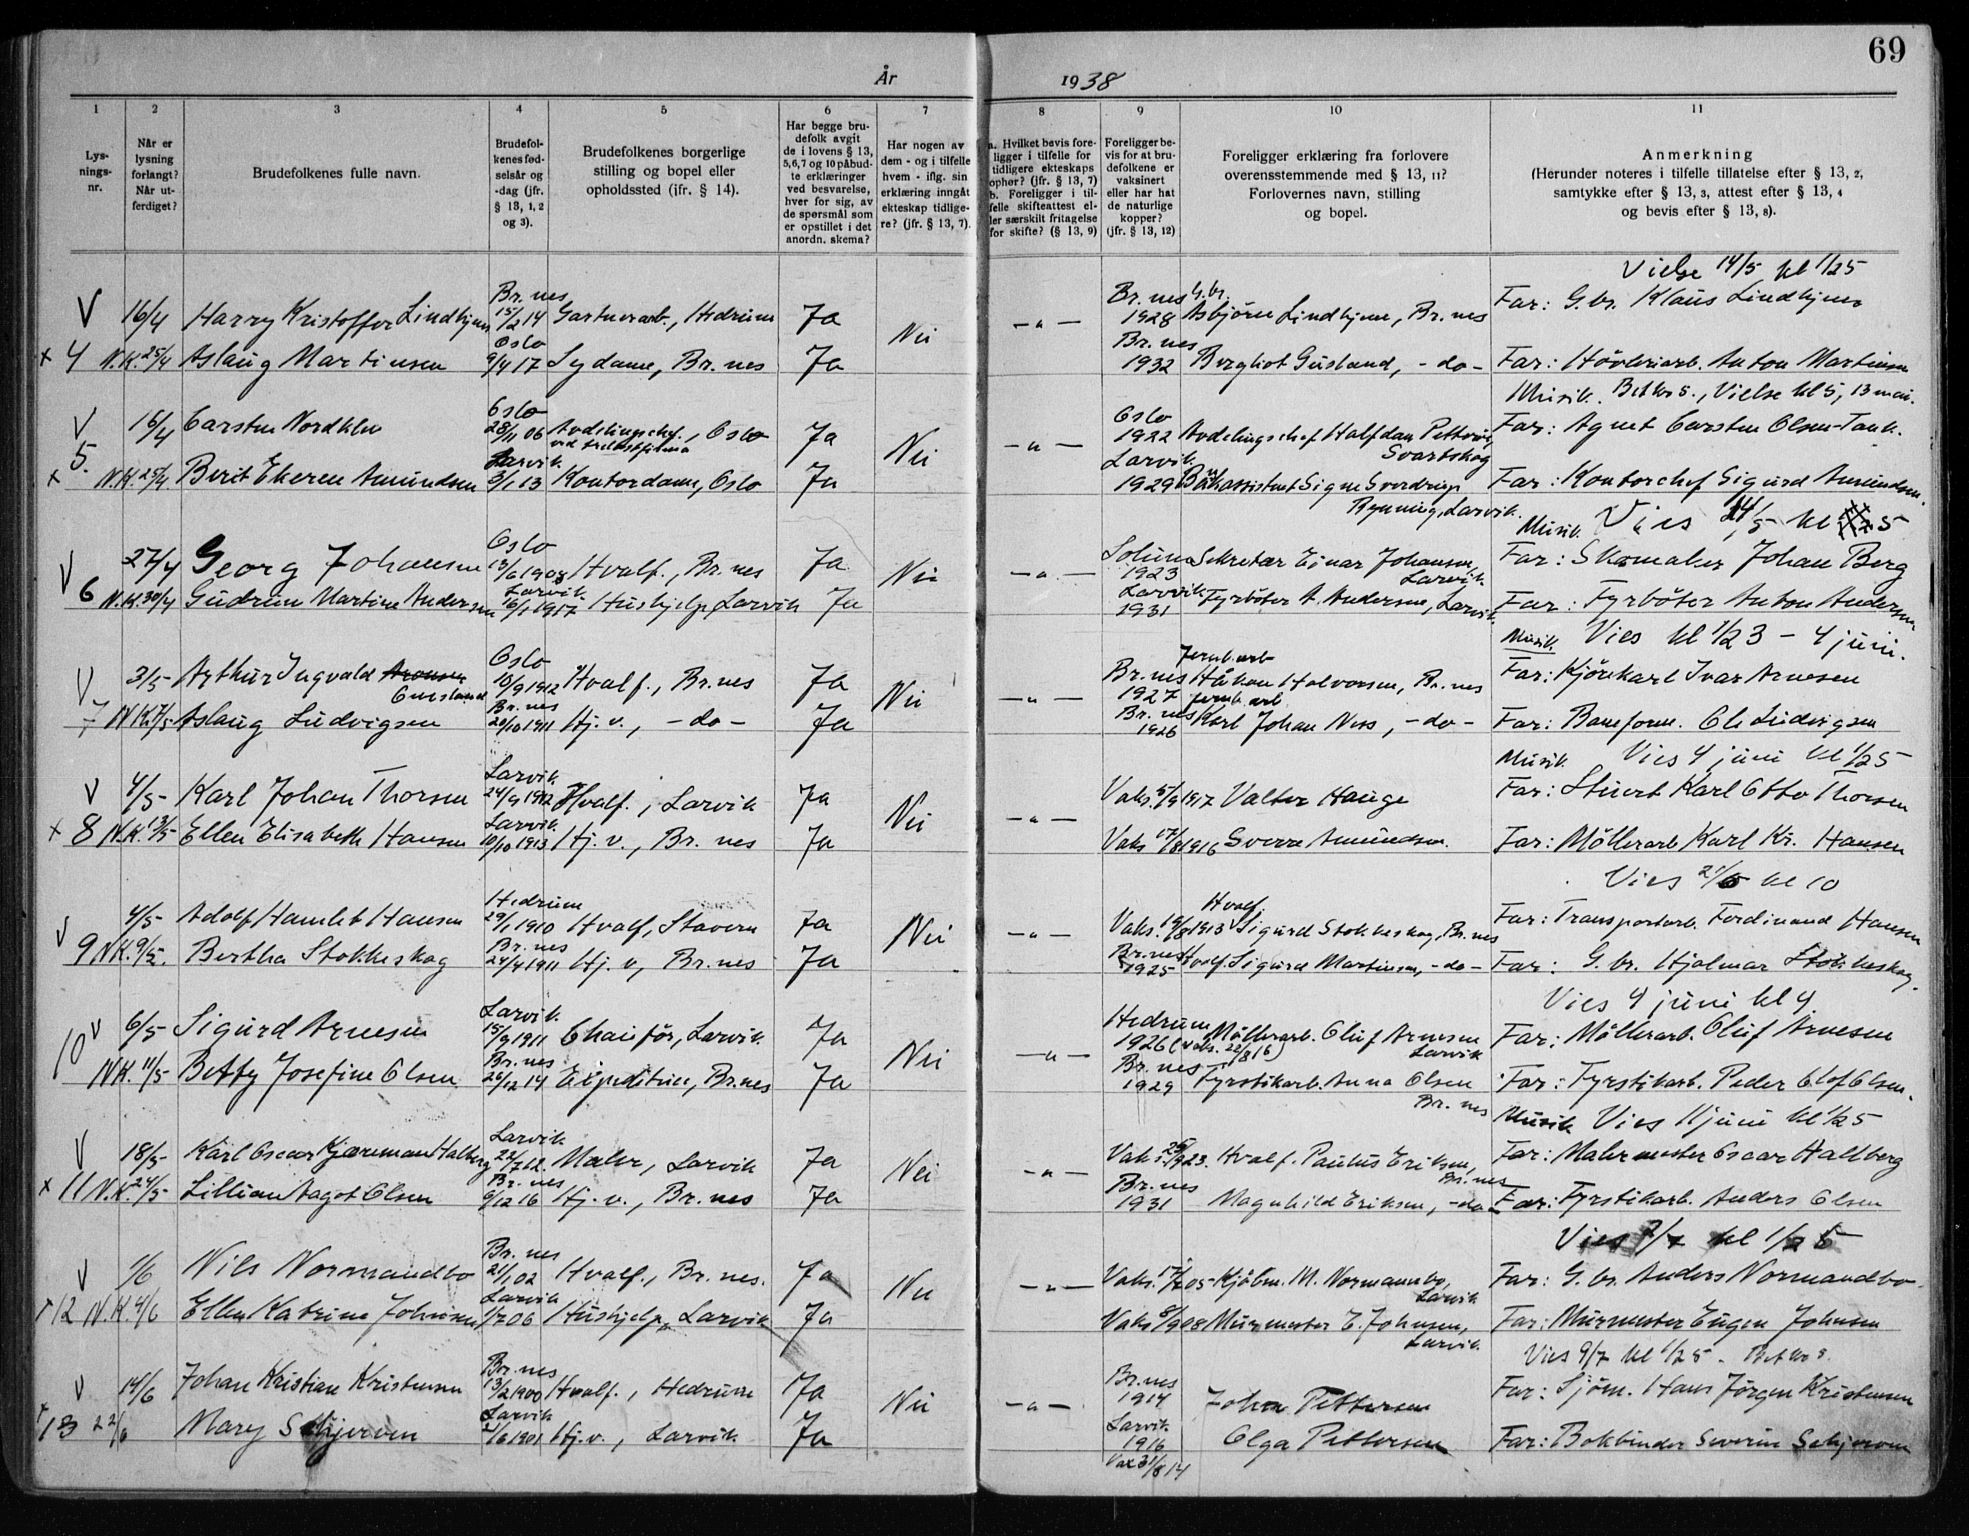 69
År 1938
1 2 3 4 5 6 7 8 9 10 11
Lys-
nings-
nr.
Når er
lysning
forlangt?
Når ut-
ferdiget?
Brudefolkenes fulle navn.
Brudefol-
kenes fød-
selsår og
-dag (jfr.
§ 13, 1, 2
og 3).
Brudefolkenes borgerlige
stilling og bopel eller
opholdssted (ifr. § 14).
Har begge bru-
defolk avgit
de i lovens § 13,
5,6,7 og 10 påbud-
te erklæringer
ved besvarelse,
hver for sig, av
de spørsmål som
er opstillet i det
anordn. skema?
Har nogen av
dem - og i tilfelle
hvem - iflg. sin
erklæring inngåt
ekteskap tidlige-
re? (jfr. § 13, 7).
a. Hvilket bevis fore-
ligger i tilfelle for
tidligere ekteskaps
ophør? (jfr. § 13, 7)
b. Foreligger i til-
felle skifteattest el-
ler særskilt fritagelse
for skifte? (§ 13, 9)
Foreligger be-
vis for at bru-
defolkene er
vaksinert
eller har hat
de naturlige
kopper?
(jfr. § 13, 12)
Foreligger erklæring fra forlovere
overensstemmende med § 13, 11?
Forlovernes navn, stilling
og bopel.
Anmerkning
(Herunder noteres i tilfelle tillatelse efter § 13, 2,
samtykke efter § 13, 3, attest efter § 13, 4
og bevis efter § 13, 8).
Vielse 14/5 kl 1/25
V 16/4 Harry Kristoffer Lindhjem Br. nes 15/2 14 Gartnerarb., Hedrum Ja Nei -"- Br. nes 1928 G.br. Asbjörn Lindhjem, Br. nes Far: G. br. Klaus Lindhjem
x 4 N.K. 25/4 Aslaug Martinsen Oslo 9/4 17 Sydame, Br. nes Ja Br. nes 1932 Bergliot Gusland, -do- Far: Hövleriarb. Anton Martinsen
Musik. Vielse kl 5, 13 mai.
V 5. 16/4 Carsten Nordklev Oslo 28/11 06 Avdelingschef., Oslo Ja Nei -"- Oslo 1922 Avdelingschef Halfdan Svartskog Far: Agent Carsten Olsen-Tank.
x N.K. 25/4. Berit Ekeren Amundsen Larvik 3/1 13 Kontordame, Oslo Ja Larvik 1929 Signe Sverdrup Rynning, Larvik. Far: Kontorchef Sigurd Amundsen.
Musik. Vies 14/5 kl 5
V 27/4 Georg Johansen Oslo 13/6 1908 Hvalf., Br. nes Ja Nei -"- Solum 1923 Sekretær Einar Johansen, Larvik Far: Skomaker Johan Berg
6 N.K. 30/4 Gudrun Martine Andersen Larvik 16/1 1917 Hushjelp, Larvik Ja Larvik 1931 Fyrböter A. Andersen, Larvik. Far: Fyrböter Anton Andersen
Musik. Vies kl 1/2 3 - 4 juni.
V 3/5 Arthur Ingvald Gusland Oslo 10/9 1912 Hvalf., Br. nes Ja Nei -"- Br. nes 1927 Jernb. arb Håkon Halvorsen, Br. nes Far: Kjörekarl Ivar Arnesen
7 N.K. 7/5 Aslaug Ludvigsen Br. nes 20/10 1911 Hj. v., -do- Ja Br. nes 1926 Jernb. arb. Karl Johan Ness, -do- Far: Baneform. Ole Ludvigsen
Musik Vies 4 juni kl 1/25
V 4/5 Karl Johan Thorsen Larvik 24/9 1912 Hvalf., Larvik Ja Nei -"- Vaks. 5/9 1917 Valter Hauge Far: Stuert Karl Otto Thorsen
x 8 N.K. 13/5 Ellen Elisabeth Hansen Larvik 10/10 1913 Hj. v., Br. nes Ja Vaks 17/8 1916 Sverre Amundsen. Far: Möllerarb Karl Kr. Hansen
Vies 21/5 kl 10
V 4/5 Adolf Hamlet Hansen Hedrum 29/1 1910 Hvalf, Stavern Ja Nei -"- Vaks. 19/8 1913 Hvalf Sigurd Stokkeskog, Br. nes Far: Transportarb. Ferdinand Hansen
9 N.K. 9/5. Bertha Stokkeskog Br. nes 24/4 1911 Hj. v, Br. nes Ja Br. nes 1925 Hvalf. Sigurd Martinsen, -do- Far: G. br. Hjalmar Stokkeskog.
Vies 4 juni kl 4
V 10 6/5 Sigurd Arnesen Larvik 15/9 1911 Chauför, Larvik. Ja Nei -"- Hedrum 1926 (vaks. 22/8 16) Möllerarb. Oluf Arnesen Larvik Far: Möllerarb. Oluf Arnesen
N.K. 11/5 Betty Josefine Olsen Br. nes 26/12 14 Expeditrice, Br. nes Ja Br. nes 1929 Fyrstikarb. Anna Olsen Br. nes Far: Fyrstikarb. Peder Olof Olsen.
Musik Vies 11 juni kl 1/25
V 18/5 Karl Oscar Kjæreman Halberg Larvik 22/7 12 Maler, Larvik Ja Nei -"- Vaks. 25/9 23. Hvalf. Paulus Eriksen, Br. nes Far: Malermester Oscar Hallberg
x 11 N.K. 24/5 Lillian Aagot Olsen Br. nes 6/12 16 Hj. v., Br. nes Ja Br. nes 1931 Magnhild Eriksen, -do- Far: Fyrstikarb. Anders Olsen
Vies 2/7 kl 1/2 5
V 1/6 Nils Normandbo Br. nes 21/1 02 Hvalf., Br. nes. Ja Nei -"- Vaks. 17/7 05 Kjöbm. M. Normannbo, Larvik Far: G. br. Anders Normandbo
12 N.K. 4/6 Ellen Katrine Johnsen Larvik 1/7 06 Hushjelp, Larvik Ja Vaks 8/9 08 Murmester E. Johnsen, Larvik Far: Murmester Eugen Johnsen
Vies 9/7 kl 1/25.
V 14/6 Johan Kristian Kristensen Br. nes 13/2 1900 Hvalf., Hedrum Ja Nei -"- Br. nes 1914 Johan Pettersen Far: Sjöm. Hans Jörgen Kristensen
13 22/6 Mary Schjerven Larvik 1/6 1901 Hj. v., Larvik Ja Larvik 1916 Olga Pettersen Far: Bokbinder Severin Schjerven
Vax 31/8 14